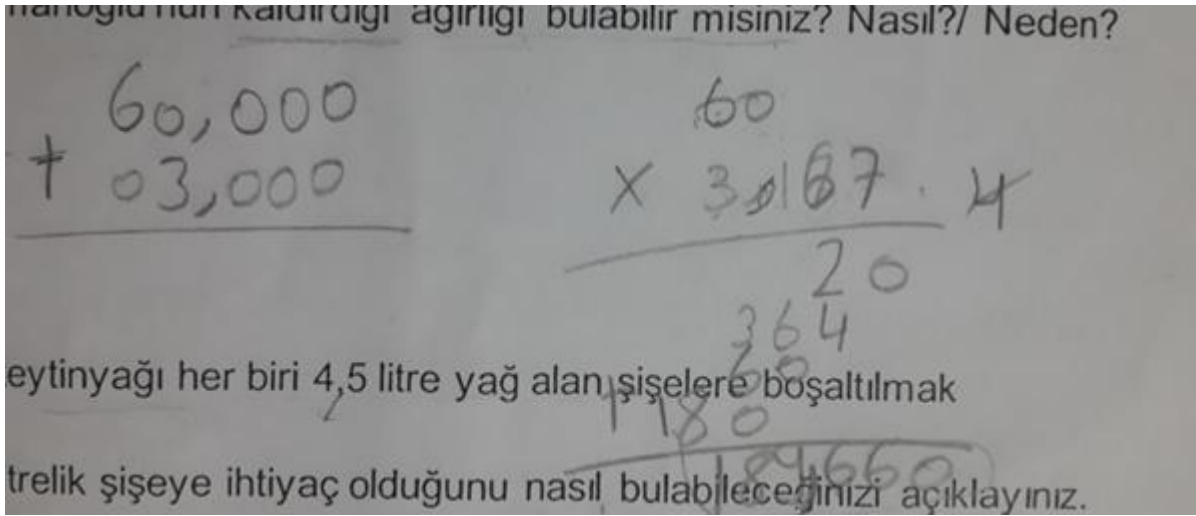 kaldırdığı ağırlığı bulabilir misiniz? Nasıl?/ Neden?
60,000
+ 03,000
60
x 4
20
364
60
eytinyağı her biri 4,5 litre yağ alan şişelere boşaltılmak
+ 180
184660
trelik şişeye ihtiyaç olduğunu nasıl bulabileceğinizi açıklayınız.